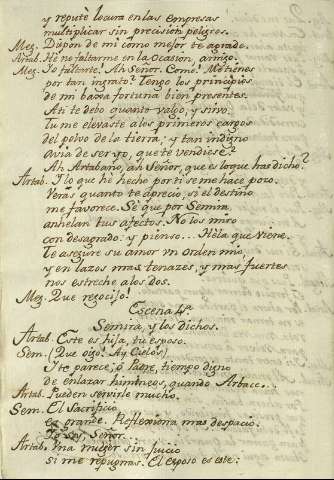 y repute locura en las empresas
multiplicar sin precision peligros.
Meg. Dispon de mi como mejor te agrade.
Artab. No faltarme en la Ocasion, amigo.
Meg. Yo faltarte! Ah Señor. Como? Me tienes
por tan ingrato? Tengo los principios
de mi baxa fortuna bien presentes.
A ti te debo quanto valgo, y sirvo.
Tu me elevaste a los primeros cargos
del polvo de la tierra; y tan indigno
avia de ser yo, que te vendiese?
Ah Artabano, ah Señor, que es lo que has dicho?
Artab. Y lo que hè hecho por ti se me hace poco.
Verás quanto te aprecio, si el destino
me favorece. Sè que por Semira
anhelan tus afectos. No los miro
con desagrado: y pienso... Hèla que viene.
Te asegure su amor un orden mio,
y en lazos mas tenazes, y mas fuertes
nos estreche a los dos.
Meg. Que regocijo!
Escena 4ª
Semira, y los dichos.
Artab. Este es hija, tu esposo.
Sem. (Que oigo! Ay Cielos)
Y te parece, ò Padre, tiempo digno
de enlazar himineos, quando Arbace...
Artab. Pueden servirle mucho.
Sem. El Sacrificio
es grande. Reflexiona mas despacio.
Señor.
Artab. Una muger sin juicio
si me repugnas. El esposo es este: